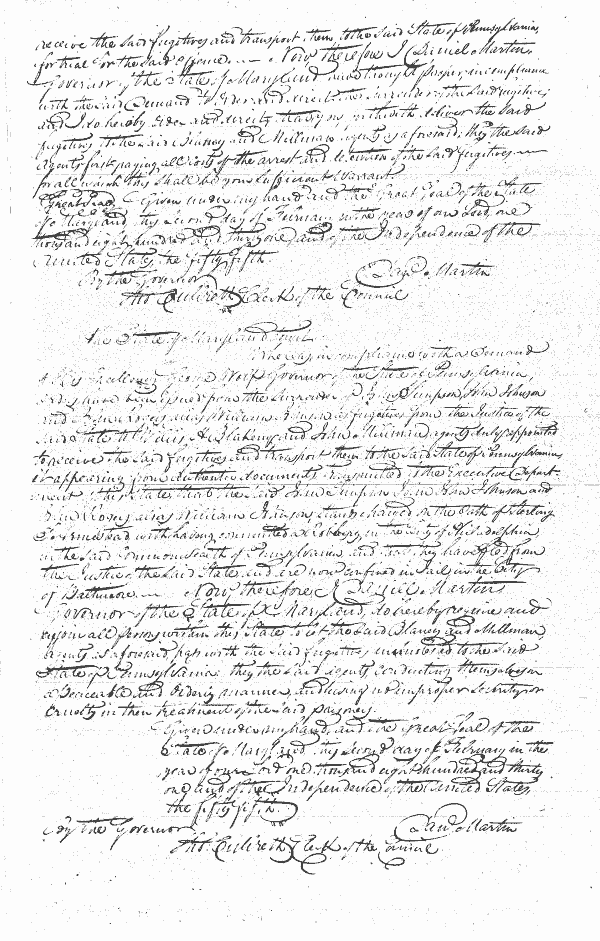 receive the said fugitives and transport them to the said State of Pennsylvania,
for trial for the said offence. — Now therefore I Daniel Martin
Governor of the State of Maryland have thought proper, in compliance
with the said Demand to order and direct the surrender of the said fugitives
and I do hereby order and direct, that you forthwith deliver the said
fugitives to the said Blaney and Millman agents as aforesaid, they the said
agents first paying all costs of the arrest and detention of the said fugitives. —
for all which this shall be your sufficient Warrant
Great Seal Given under my hand and the Great Seal of the State
of Maryland, this second day of February in the year of our Lord, one
thousand eight hundred and thirty one, and of the Independence of the
United States the fifty fifth.
By the Governor Danl. Martin
Thos. Culbreth Clerk of the Council
The State of Maryland
Whereas in compliance with a Demand
of His Excellency George Wolf Governor of the State of Pennsylvania,
have been issued for the surrender of Simpson, John Johnson
and alias William as fugitives from the Justice of the
said State to Willis H. Blaney and John Millman agents duly appointed
to receive the said fugitives and transport them to the said State of Pennsylvania
it appearing from authentic documents transmitted to the Executive Depart-
ment of this State that the said Simpson John Johnson and
alias William stand charged on the Oath of Sterling
with having committed a Robbery in the City of Philadelphia
in the said Commonwealth of Pennsylvania and that they have fled from
the Justice of the said State and are now confined in Jail in the City
of Baltimore. — Now, therefore, I Daniel Martin
Governor of the State of Maryland, do hereby require and
enjoin all persons within this State to let the said Blaney and Millman
agents as aforesaid pass with the said fugitives unmolested to the said
State of Pennsylvania: they the said agents conducting themselves in
a Peaceable and Orderly manner, and using no improper severity or
cruelty in their treatment of the said prisoners.
Given under my hand, and the Great Seal of the
State of Maryland, this second day of February in the
year of our Lord one thousand eight hundred and thirty
one, and of the Independence of the United States
the fifty fifth.
By the Governor Danl. Martin
Thos. Culbreth Clerk of the Council